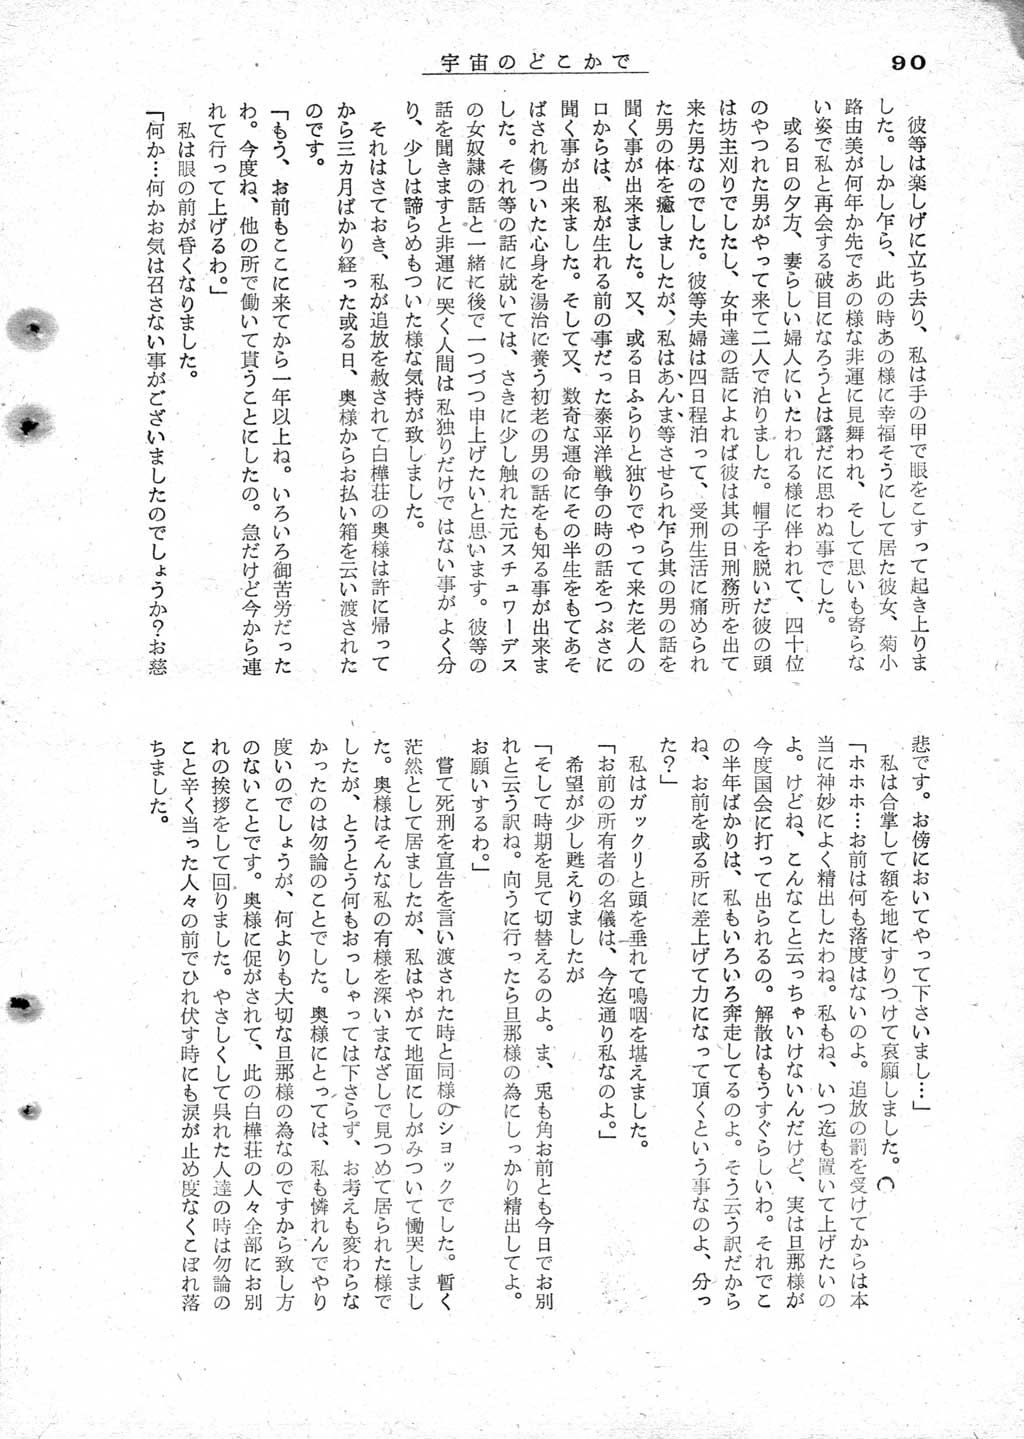 90
宇宙のどこかで
彼等は楽しげに立ち去り、私は手の甲で眼をこすって起き上りま
した。しかし乍ら、此の時あの様に幸福そうにして居た彼女、菊小
路由美が何年か先であの様な非運に見舞われ、そして思いも寄らな
い姿で私と再会する破目になろうとは露だに思わぬ事でした。
或る日の夕方、妻らしい婦人にいたわれる様に伴われて、四十位
のやつれた男がやって来て二人で泊りました。帽子を脱いだ彼の頭
は坊主刈りでしたし、女中達の話によれば彼は其の日刑務所を出て
来た男なのでした。彼等夫婦は四日程泊って、受刑生活に痛められ
た男の体を癒しましたが、私はあんま等させられ乍ら其の男の話を
聞く事が出来ました。又、或る日ふらりと独りでやって来た老人の
口からは、私が生れる前の事だった泰平洋戦争の時の話をつぶさに
聞く事が出来ました。そして又、数奇な運命にその半生をもてあそ
ばされ傷ついた心身を湯治に養う初老の男の話をも知る事が出来ま
した。それ等の話に就いては、さきに少し触れた元スチュワーデス
の女奴隷の話と一緒に後で一つづつ申上げたいと思います。彼等の
話を聞きますと非運に哭く人間は私独りだけではない事がよく分
り、少しは諦らめもついた様な気持が致しました。
それはさておき、私が追放を赦されて白樺荘の奥様は許に帰って
から三カ月ばかり経った或る日、奥様からお払い箱を云い渡された
のです。
「もう、お前もここに来てから一年以上ね。いろいろ御苦労だった
わ。今度ね、他の所で働いて貰うことにしたの。急だけど今から連
れて行って上げるわ。」
私は眼の前が昏くなりました。
「何か…何かお気は召さない事がございましたのでしょうか？お慈
悲です。お傍においてやって下さいまし…」
私は合掌して額を地にすりつけて哀願しました。
「ホホホ…お前は何も落度はないのよ。追放の罰を受けてからは本
当に神妙によく精出したわね。私もね、いつ迄も置いて上げたいの
よ。けどね、こんなこと云っちゃいけないんだけど、実は旦那様が
今度国会に打って出られるの。解散はもうすぐらしいわ。それでこ
の半年ばかりは、私もいろいろ奔走してるのよ。そう云う訳だから
ね、お前を或る所に差上げて力になって頂くという事なのよ、分っ
た？」
私はガックリと頭を垂れて嗚咽を堪えました。
「お前の所有者の名儀は、今迄通り私なのよ。」
希望が少し甦えりましたが
「そして時期を見て切替えるのよ。ま、兎も角お前とも今日でお別
れと云う訳ね。向うに行ったら旦那様の為にしっかり精出してよ。
お願いするわ。」
嘗て死刑を宣告を言い渡された時と同様のショックでした。暫く
茫然として居ましたが、私はやがて地面にしがみついて慟哭しまし
た。奥様はそんな私の有様を深いまなざしで見つめて居られた様で
したが、とうとう何もおっしゃっては下さらず、お考えも変わらな
かったのは勿論のことでした。奥様にとっては、私も憐れんでやり
度いのでしょうが、何よりも大切な旦那様の為なのですから致し方
のないことです。奥様に促がされて、此の白樺荘の人々全部にお別
れの挨拶をして回りました。やさしくして呉れた人達の時は勿論の
こと辛く当った人々の前でひれ伏す時にも涙が止め度なくこぼれ落
ちました。